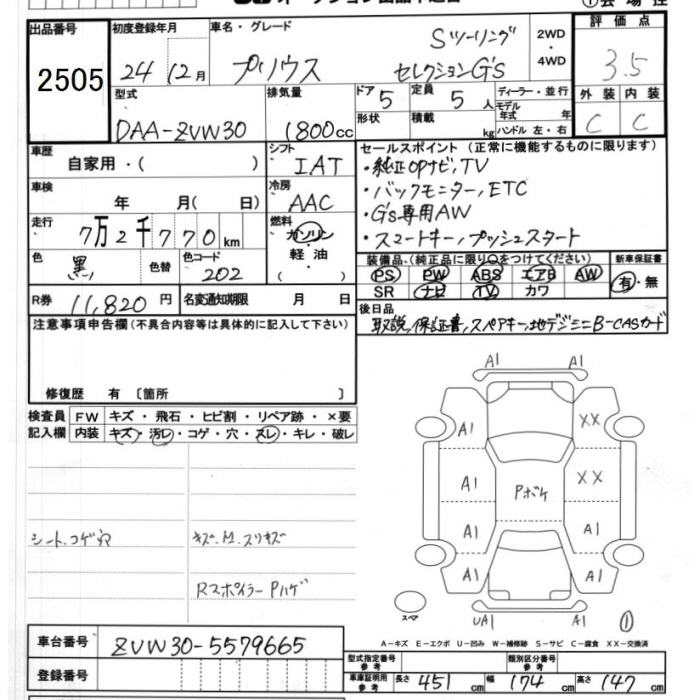 出品番号 初度登録年月 車名・グレード
2505
24 12月 プリウス Sツーリング セレクションG's
2WD ・ 4WD
評価点
3.5
型式 DAA-ZVW30
排気量 1800cc
ドア 5 定員 5人
形状 積載 kg
ディーラー・並行
モデル年式 年
ハンドル 左・右
外装 内装
C C
車歴 自家用・( )
シフト IAT
車検 年 月( 日)
冷房 AAC
走行 7万2千770km
燃料 ガソリン 軽油
色 黒 色替 色コード 202
R券 11,820円 名変通知期限 月 日
セールスポイント(正常に機能するものに限ります)
・純正OPナビ,TV
・バックモニター,ETC
・G's専用AW
・スマートキー,プッシュスタート
装備品(純正品に限り○をつけてください) 新車保証書
PS PW ABS エアB AW 有・無
SR ナビ TV カワ
後日品
取説,保証書,スペアキー,地デジミニB-CASカード
注意事項申告欄(不具合内容等は具体的に記入して下さい)
修復歴 有 〔箇所 〕
検査員記入欄 FW キズ・飛石・ヒビ割・リペア跡・×要
内装 キズ・汚レ・コゲ・穴・スレ・キレ・破レ
シート.コゲ穴
キズ.A.スリキズ
Rスポイラー Pハゲ
A1 A1
A1 XX
A1 Pボケ XX
A1 A1
A1 A1
スペア UA1 A1 ①
A-キズ E-エクボ U-凹み W-補修跡 S-サビ C-腐食 XX-交換済
車台番号 ZVW30-5579665
登録番号
型式指定番号 参考 類別区分番号 参考
車庫証明用 参考 長さ 451cm 幅 174cm 高さ 147cm